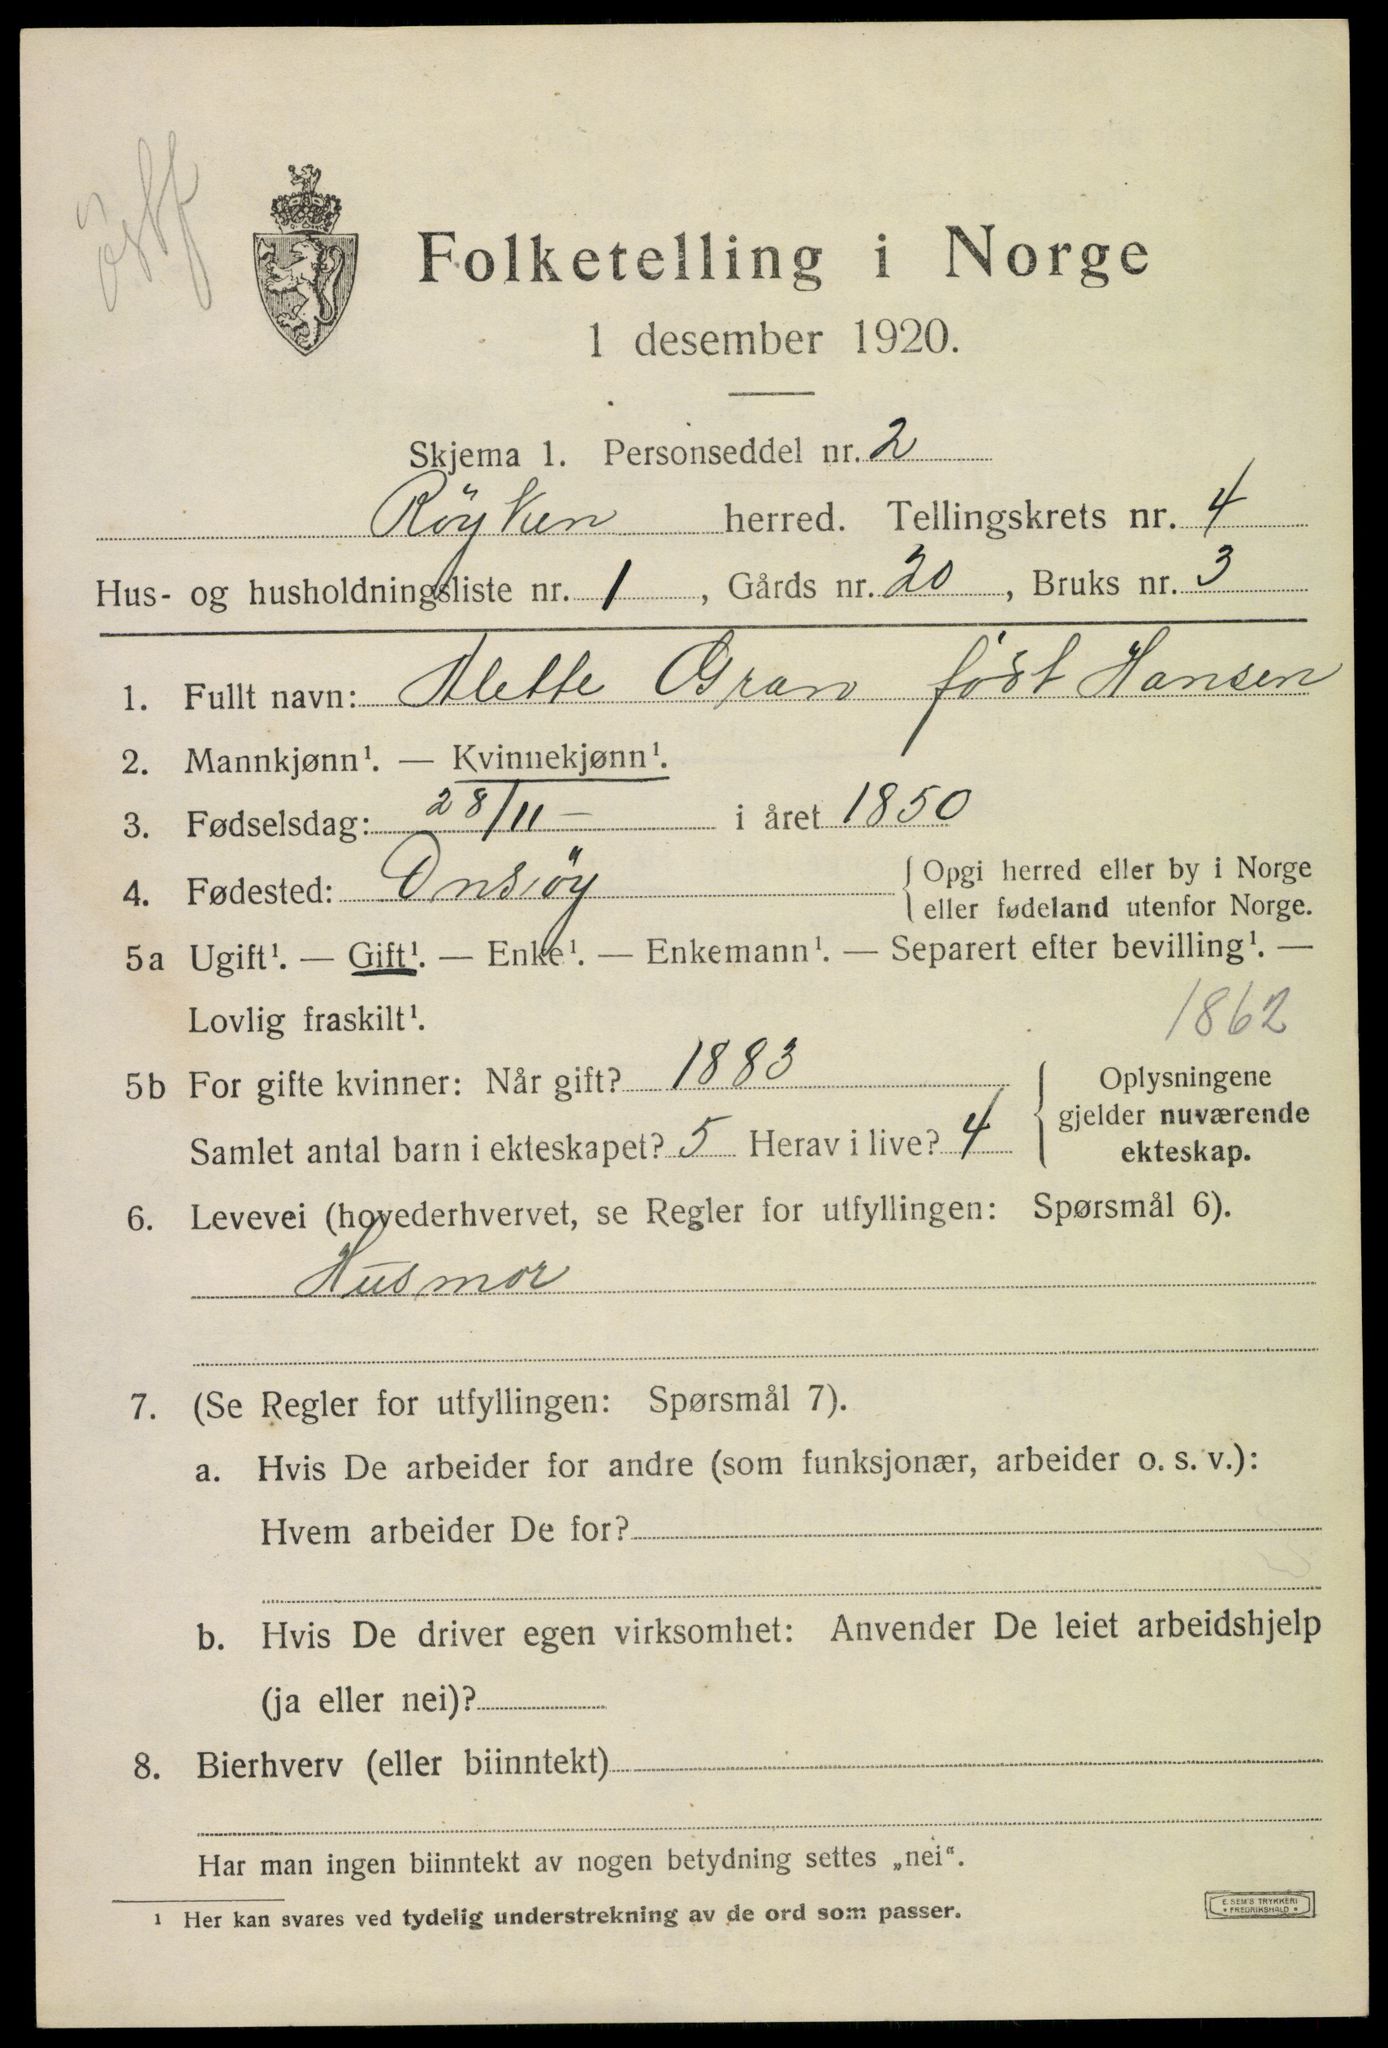 östf
Folketelling i Norge
1 desember 1920.
Skjema 1. Personseddel nr. 2
Röyken herred. Tellingskrets nr. 4
Hus- og husholdningsliste nr. 1, Gårds nr. 20, Bruks nr. 3
1. Fullt navn: Alette Gran föst Hansen
2. Mannkjønn¹. — Kvinnekjønn¹.
3. Fødselsdag: 28/11 – i året 1850
4. Fødested: Onsöy { Opgi herred eller by i Norge
eller fødeland utenfor Norge.
5a Ugift¹. — Gift¹. — Enke¹. — Enkemann¹. — Separert efter bevilling¹. —
Lovlig fraskilt¹.
1862
5b For gifte kvinner: Når gift? 1883
Samlet antal barn i ekteskapet? 5 Herav i live? 4
{ Oplysningene
gjelder nuværende
ekteskap.
6. Levevei (hovederhvervet, se Regler for utfyllingen: Spørsmål 6).
Husmor
7. (Se Regler for utfyllingen: Spørsmål 7).
a. Hvis De arbeider for andre (som funksjonær, arbeider o. s. v.):
Hvem arbeider De for?
b. Hvis De driver egen virksomhet: Anvender De leiet arbeidshjelp
(ja eller nei)?
8. Bierhverv (eller biinntekt)
Har man ingen biinntekt av nogen betydning settes „nei“.
¹ Her kan svares ved tydelig understrekning av de ord som passer.
E. SEM'S TRYKKERI
* FREDRIKSHALD *